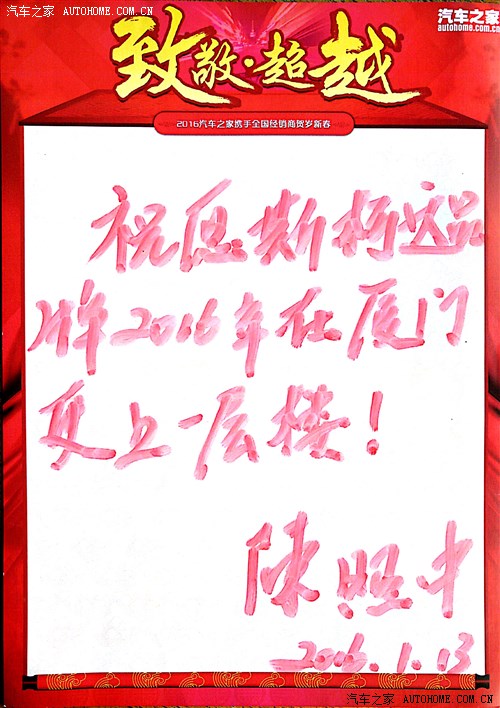 汽车之家 AUTOHOME.COM.CN
汽车之家
autohome.com.cn
致敬·超越
2016汽车之家携手全国经销商贺岁新春
祝恩斯柯达品
牌2016年在厦门
更上一层楼！
陈照中
2016.1.13
汽车之家 AUTOHOME.COM.CN